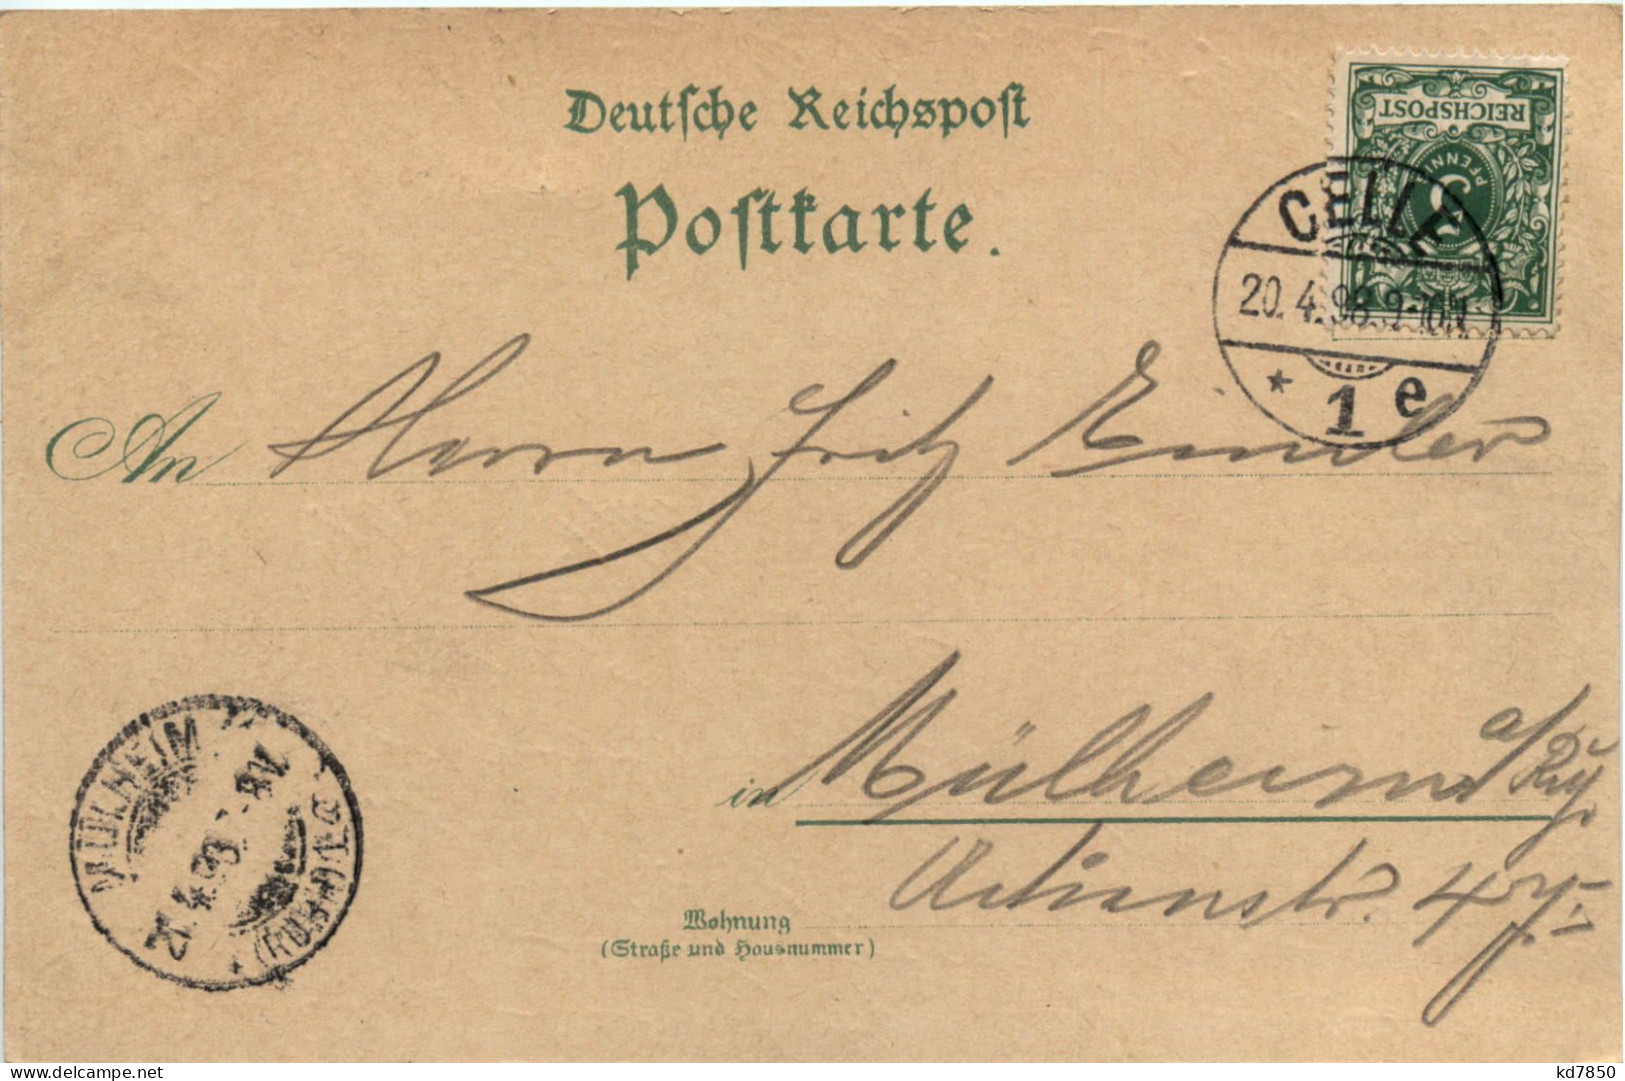 Deutsche Reichspost
Postkarte.
REICHSPOST
5
PFENNIG
CELLE
20.4.98.9-10N.
* 1 e
An Herrn Fritz Emder
in Mülheim a/Ruhr
Actienstr. 47.
Wohnung
(Straße und Hausnummer)
MÜLHEIM
21.4.98. -8V.
* (RUHR)
kd7850